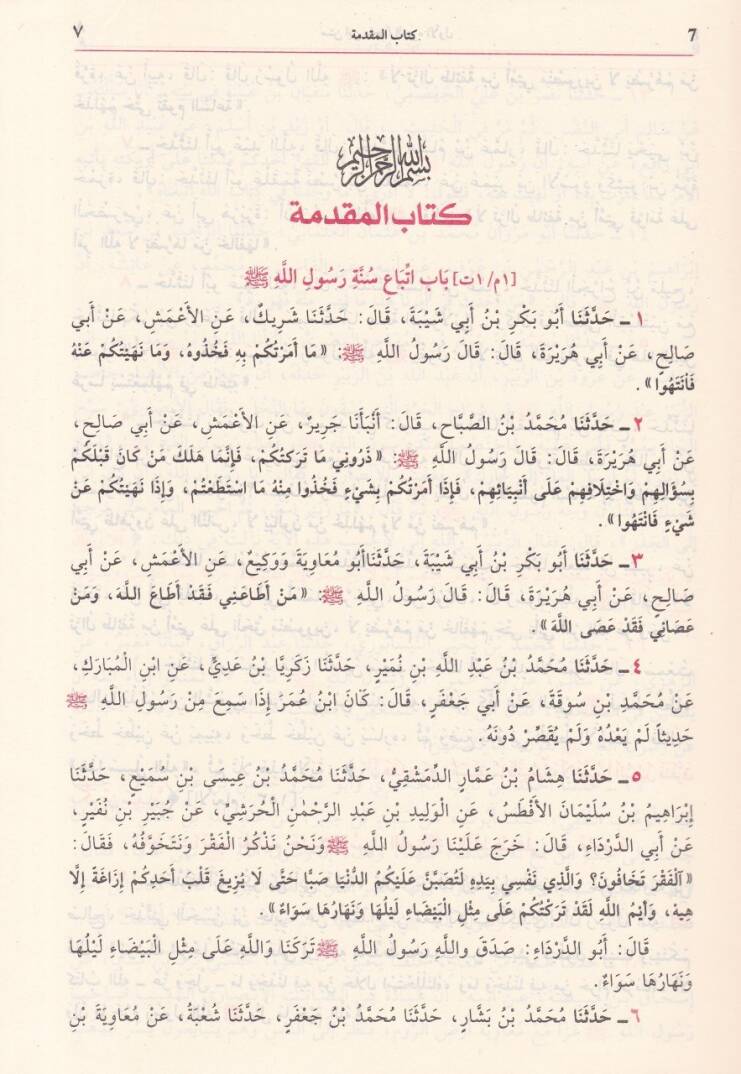 7 كتاب المقدمة ٧
بسم الله الرحمن الرحيم
كتاب المقدمة
[١م/١ت] بَاب اتِّبَاعِ سُنَّةِ رَسُولِ اللَّهِ ﷺ
١ ـ حَدَّثَنَا أَبُو بَكْرِ بْنُ أَبِي شَيْبَةَ، قَالَ: حَدَّثَنَا شَرِيكٌ، عَنِ الأَعْمَشِ، عَنْ أَبي
صَالِحٍ، عَنْ أَبِي هُرَيْرَةَ، قَالَ: قَالَ رَسُولُ اللَّهِ ﷺ: «مَا أَمَرْتُكُمْ بِهِ فَخُذُوهُ، وَمَا نَهَيْتُكُمْ عَنْهُ
فَأنْتَهُوا».
٢ ـ حَدَّثَنَا مُحَمَّدُ بْنُ الصَّبَّاحِ، قَالَ: أَنْبَأَنَا جَرِيرٌ، عَنِ الأَعْمَشِ، عَنْ أَبي صَالِحٍ،
عَنْ أَبِي هُرَيْرَةَ، قَالَ: قَالَ رَسُولُ اللَّهِ ﷺ: «ذَرُونِي مَا تَرَكتُكُمْ، فَإِنَّمَا هَلَكَ مَنْ كَانَ قَبْلَكُمْ
بِسُؤَالِهِمْ وَاخْتِلَافِهِمْ عَلَى أَنْبِيَائِهِمْ، فَإِذَا أَمَرْتُكُمْ بِشَيْءٍ فَخُذُوا مِنْهُ مَا اسْتَطَعْتُمْ، وَإِذَا نَهَيْتُكُمْ عَنْ
شَيْءٍ فَانْتَهُوا».
٣ ـ حَدَّثَنَا أَبُو بَكْرِ بْنُ أَبِي شَيْبَةَ، حَدَّثَنَا أَبُو مُعَاوِيَةَ وَوَكِيعٌ، عَنِ الأَعْمَشِ، عَنْ أَبِي
صَالِحٍ، عَنْ أَبِي هُرَيْرَةَ، قَالَ: قَالَ رَسُولُ اللَّهِ ﷺ: «مَنْ أَطَاعَنِي فَقَدْ أَطَاعَ اللَّهَ، وَمَنْ
عَصَانِي فَقَدْ عَصَى اللَّهَ».
٤ ـ حَدَّثَنَا مُحَمَّدُ بْنُ عَبْدِ اللَّهِ بْنِ نُمَيْرٍ، حَدَّثَنَا زَكَرِيَّا بْنُ عَدِيٍّ، عَنِ ابْنِ الْمُبَارَكِ،
عَنْ مُحَمَّدِ بْنِ سُوقَةَ، عَنْ أَبي جَعْفَرٍ، قَالَ: كَانَ ابْنُ عُمَرَ إِذَا سَمِعَ مِنْ رَسُولِ اللَّهِ ﷺ
حَدِيثاً لَمْ يَعْدُهُ وَلَمْ يُقَصِّرْ دُونَهُ.
٥ ـ حَدَّثَنَا هِشَامُ بْنُ عَمَّارٍ الدِّمَشْقِيُّ، حَدَّثَنَا مُحَمَّدُ بْنُ عِيسَى بْنِ سُمَيْعٍ، حَدَّثَنَا
إِبْرَاهِيمُ بْنُ سُلَيْمَانَ الأَفْطَسُ، عَنِ الْوَلِيدِ بْنِ عَبْدِ الرَّحْمٰنِ الْجُرَشِيِّ، عَنْ جُبَيْرِ بْنِ نُفَيْرٍ،
عَنْ أَبِي الدَّرْدَاءِ، قَالَ: خَرَجَ عَلَيْنَا رَسُولُ اللَّهِ ﷺ وَنَحْنُ نَذْكُرُ الْفَقْرَ وَنَتَخَوَّفُهُ، فَقَالَ:
«آلْفَقْرَ تَخَافُونَ؟ وَالَّذِي نَفْسِي بِيَدِهِ لَتُصَبَّنَّ عَلَيْكُمُ الدُّنْيَا صَبًّا حَتَّى لَا يُزِيغَ قَلْبَ أَحَدِكُمْ إِزَاغَةً إِلَّا
هِيهْ، وَأَيْمُ اللَّهِ لَقَدْ تَرَكْتُكُمْ عَلَى مِثْلِ الْبَيْضَاءِ لَيْلُهَا وَنَهَارُهَا سَوَاءٌ».
قَالَ: أَبُو الدَّرْدَاءِ: صَدَقَ وَاللَّهِ رَسُولُ اللَّهِ ﷺ تَرَكَنَا وَاللَّهِ عَلَى مِثْلِ الْبَيْضَاءِ لَيْلُهَا
وَنَهَارُهَا سَوَاءٌ.
٦ ـ حَدَّثَنَا مُحَمَّدُ بْنُ بَشَّارٍ، حَدَّثَنَا مُحَمَّدُ بْنُ جَعْفَرٍ، حَدَّثَنَا شُعْبَةُ، عَنْ مُعَاوِيَةَ بْنِ